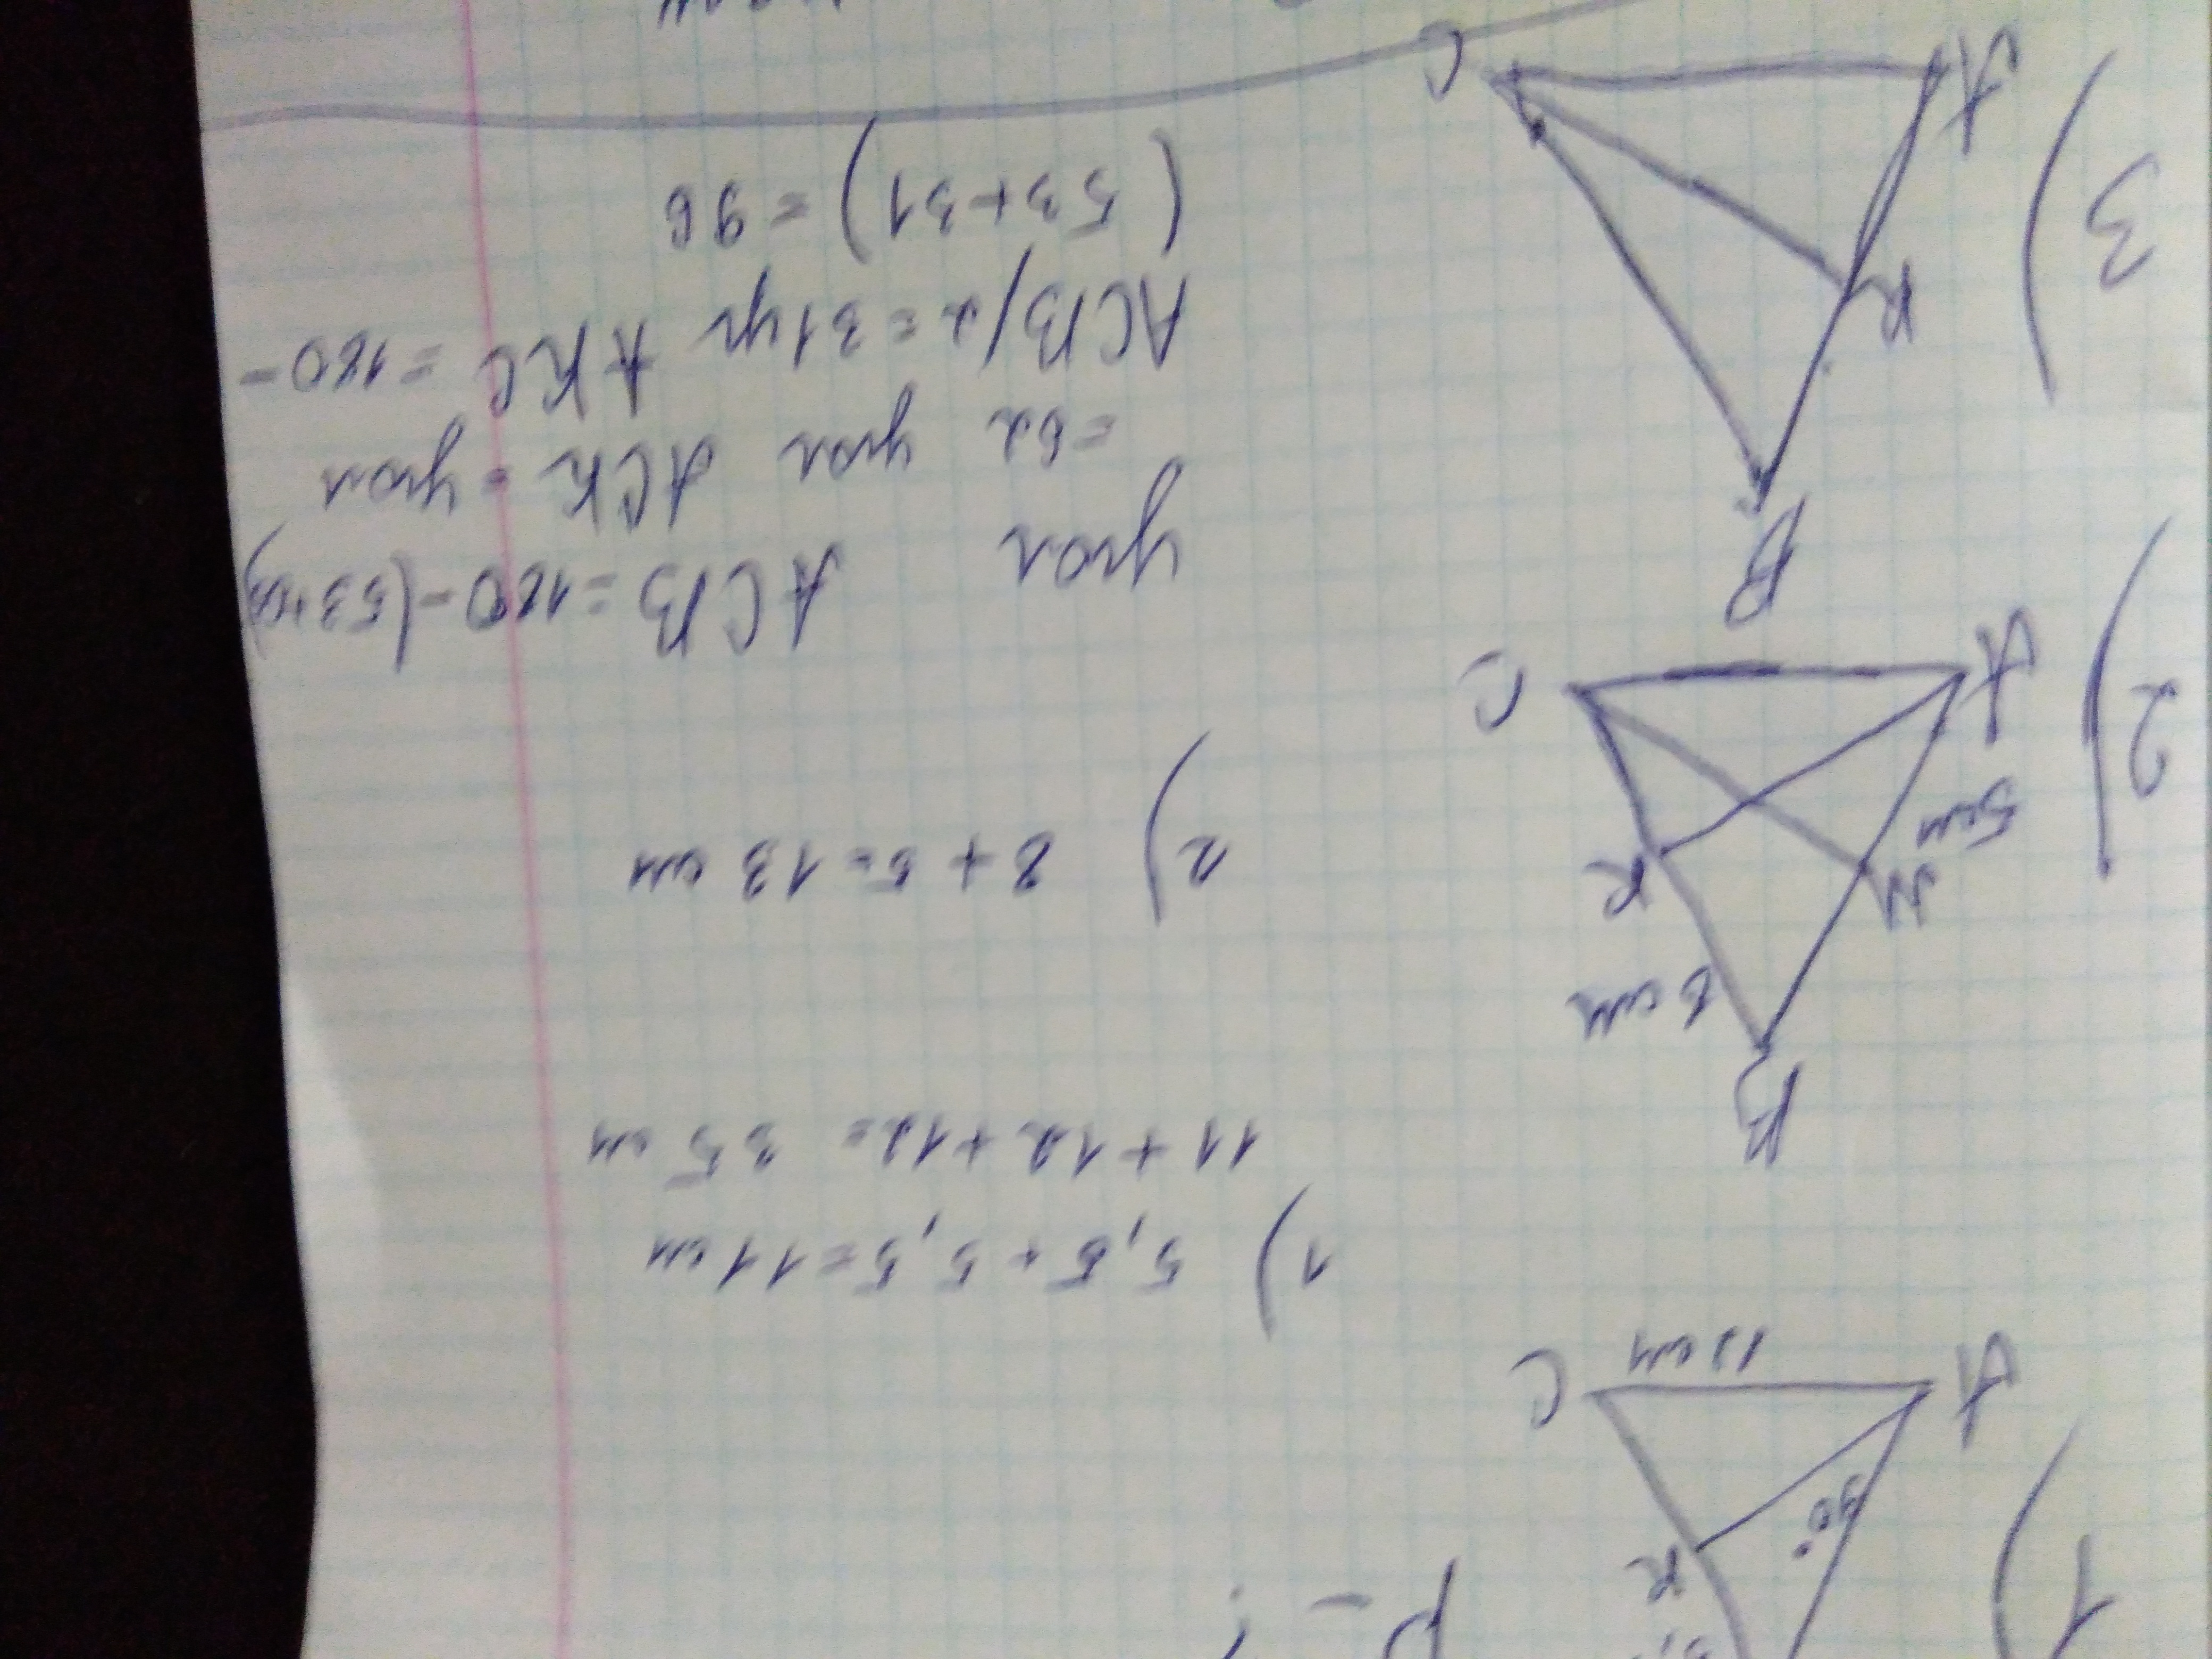 1)
P - ;
K
90°
A
C
12 см
1) 5,5 + 5,5 = 11 см
11 + 12 + 12 = 35 см
2)
B
8 см
M
K
5 см
A
C
2) 8 + 5 = 13 см
3)
B
K
A
C
угол ACB = 180 - (53+
= 62 угол ACK = угол
ACB/2 = 31 уг AKC = 180 -
(53+31) = 96